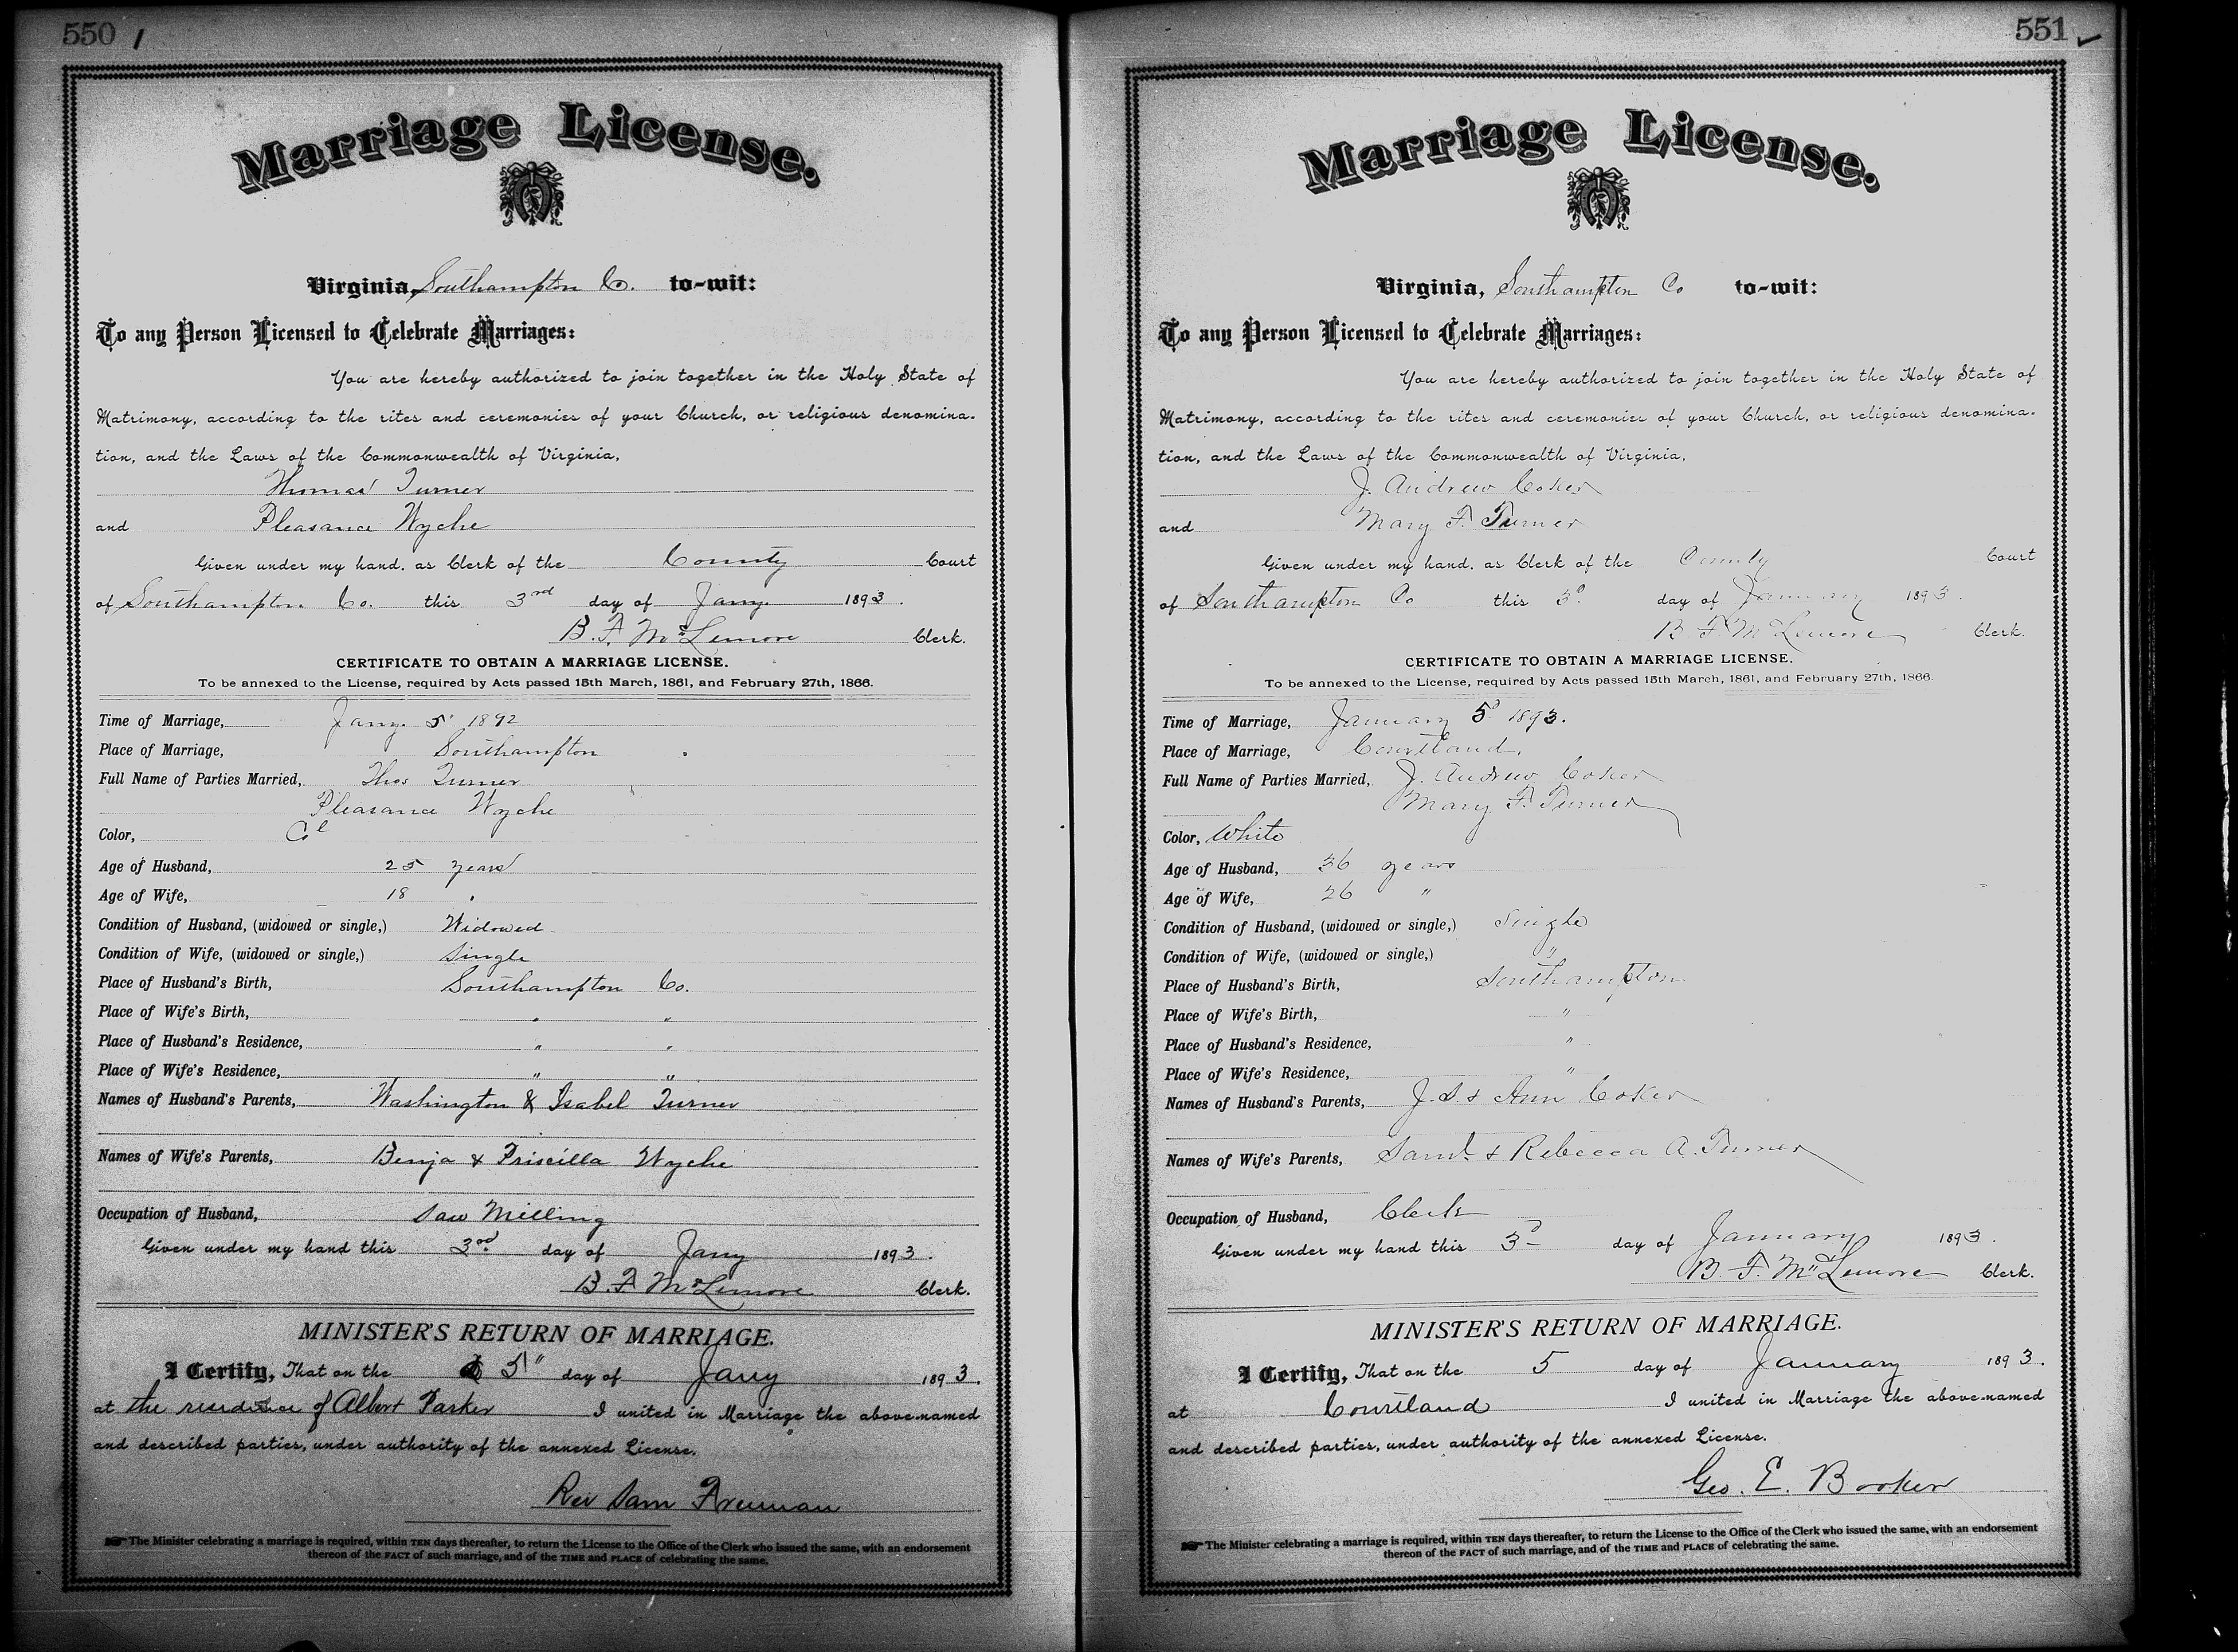 550
Marriage License.
Virginia, Southampton Co. to-wit:
To any Person Licensed to Celebrate Marriages:
You are hereby authorized to join together in the Holy State of
Matrimony, according to the rites and ceremonies of your Church, or religious denomina-
tion, and the Laws of the Commonwealth of Virginia,
Thomas Turner
and Pleasance Wyche
Given under my hand, as Clerk of the County Court
of Southampton Co. this 3rd day of Jany. 1893.
B. F. McLemore Clerk.
CERTIFICATE TO OBTAIN A MARRIAGE LICENSE.
To be annexed to the License, required by Acts passed 15th March, 1861, and February 27th, 1866.
Time of Marriage, Jany. 5" 1892
Place of Marriage, Southampton
Full Name of Parties Married, Thos Turner
Pleasance Wyche
Color, Col
Age of Husband, 25 years
Age of Wife, 18 "
Condition of Husband, (widowed or single,) Widowed
Condition of Wife, (widowed or single,) Single
Place of Husband's Birth, Southampton Co.
Place of Wife's Birth, " "
Place of Husband's Residence, " "
Place of Wife's Residence, " "
Names of Husband's Parents, Washington & Isabel Turner
Names of Wife's Parents, Benja & Priscilla Wyche
Occupation of Husband, Saw Milling
Given under my hand this 3rd day of Jany 1893.
B. F. McLemore Clerk.
MINISTER'S RETURN OF MARRIAGE.
I Certify, That on the 5" day of Jany 1893.
at the residence of Albert Parker I united in Marriage the above-named
and described parties, under authority of the annexed License.
Rev Sam Freeman
The Minister celebrating a marriage is required, within TEN days thereafter, to return the License to the Office of the Clerk who issued the same, with an endorsement
thereon of the FACT of such marriage, and of the TIME and PLACE of celebrating the same.
551
Marriage License.
Virginia, Southampton Co to-wit:
To any Person Licensed to Celebrate Marriages:
You are hereby authorized to join together in the Holy State of
Matrimony, according to the rites and ceremonies of your Church, or religious denomina-
tion, and the Laws of the Commonwealth of Virginia,
J. Andrew Coker
and Mary F. Turner
Given under my hand, as Clerk of the County Court
of Southampton Co this 3d day of January 1893.
B F McLemore Clerk.
CERTIFICATE TO OBTAIN A MARRIAGE LICENSE.
To be annexed to the License, required by Acts passed 15th March, 1861, and February 27th, 1866.
Time of Marriage, January 5th 1893.
Place of Marriage, Courtland.
Full Name of Parties Married, J. Andrew Coker
Mary F. Turner
Color, White
Age of Husband, 36 years
Age of Wife, 26 "
Condition of Husband, (widowed or single,) Single
Condition of Wife, (widowed or single,) "
Place of Husband's Birth, Southampton
Place of Wife's Birth, "
Place of Husband's Residence, "
Place of Wife's Residence, "
Names of Husband's Parents, J. S. & Ann Coker
Names of Wife's Parents, Saml. & Rebecca A. Turner
Occupation of Husband, Clerk
Given under my hand this 3d day of January 1893.
B. F. McLemore Clerk.
MINISTER'S RETURN OF MARRIAGE.
I Certify, That on the 5 day of January 1893.
at Courtland I united in Marriage the above-named
and described parties, under authority of the annexed License.
Geo. E. Booker
The Minister celebrating a marriage is required, within TEN days thereafter, to return the License to the Office of the Clerk who issued the same, with an endorsement
thereon of the FACT of such marriage, and of the TIME and PLACE of celebrating the same.